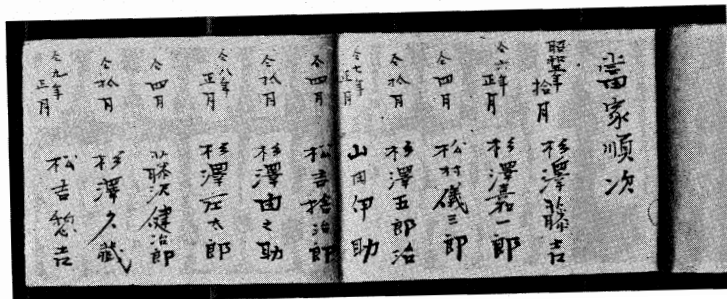 當家順次
昭和五年 拾月 杉澤藤吉
仝六年 正月 杉澤嘉一郎
仝四月 松村儀三郎
仝拾月 杉澤五郎治
仝七年 正月 山内伊助
仝四月 松吉捨治郎
仝拾月 杉澤由之助
仝八年 正月 杉澤左太郎
仝四月 藤沢健治郎
仝拾月 杉澤久蔵
仝九年 正月 松吉惣吉